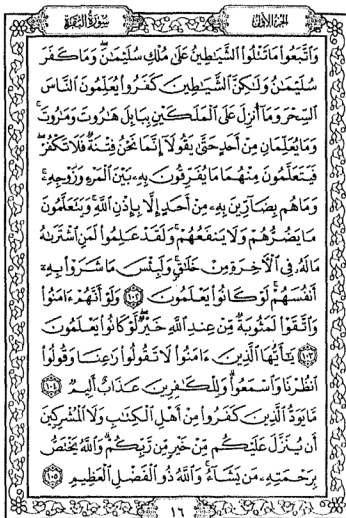 الجزء الأول سورة البقرة
وَاتَّبَعُوا۟ مَا تَتْلُوا۟ الشَّيَاطِينُ عَلَىٰ مُلْكِ سُلَيْمَـٰنَ ۖ وَمَا كَفَرَ
سُلَيْمَـٰنُ وَلَـٰكِنَّ الشَّيَاطِينَ كَفَرُوا۟ يُعَلِّمُونَ النَّاسَ
السِّحْرَ وَمَا أُنزِلَ عَلَى الْمَلَكَيْنِ بِبَابِلَ هَـٰرُوتَ وَمَـٰرُوتَ ۚ
وَمَا يُعَلِّمَانِ مِنْ أَحَدٍ حَتَّىٰ يَقُولَا إِنَّمَا نَحْنُ فِتْنَةٌ فَلَا تَكْفُرْ ۖ
فَيَتَعَلَّمُونَ مِنْهُمَا مَا يُفَرِّقُونَ بِهِۦ بَيْنَ الْمَرْءِ وَزَوْجِهِۦ ۚ
وَمَا هُم بِضَآرِّينَ بِهِۦ مِنْ أَحَدٍ إِلَّا بِإِذْنِ اللَّهِ ۚ وَيَتَعَلَّمُونَ
مَا يَضُرُّهُمْ وَلَا يَنفَعُهُمْ ۚ وَلَقَدْ عَلِمُوا۟ لَمَنِ اشْتَرَىٰهُ
مَا لَهُۥ فِي الْآخِرَةِ مِنْ خَلَـٰقٍ ۚ وَلَبِئْسَ مَا شَرَوْا۟ بِهِۦٓ
أَنفُسَهُمْ ۚ لَوْ كَانُوا۟ يَعْلَمُونَ ١٠٢ وَلَوْ أَنَّهُمْ ءَامَنُوا۟
وَاتَّقَوْا۟ لَمَثُوبَةٌ مِّنْ عِندِ اللَّهِ خَيْرٌ ۖ لَّوْ كَانُوا۟ يَعْلَمُونَ
١٠٣ يَـٰٓأَيُّهَا الَّذِينَ ءَامَنُوا۟ لَا تَقُولُوا۟ رَٰعِنَا وَقُولُوا۟
انظُرْنَا وَاسْمَعُوا۟ ۗ وَلِلْكَـٰفِرِينَ عَذَابٌ أَلِيمٌ ١٠٤
مَّا يَوَدُّ الَّذِينَ كَفَرُوا۟ مِنْ أَهْلِ الْكِتَـٰبِ وَلَا الْمُشْرِكِينَ
أَن يُنَزَّلَ عَلَيْكُم مِّنْ خَيْرٍ مِّن رَّبِّكُمْ ۗ وَاللَّهُ يَخْتَصُّ
بِرَحْمَتِهِۦ مَن يَشَآءُ ۚ وَاللَّهُ ذُو الْفَضْلِ الْعَظِيمِ ١٠٥
١٦